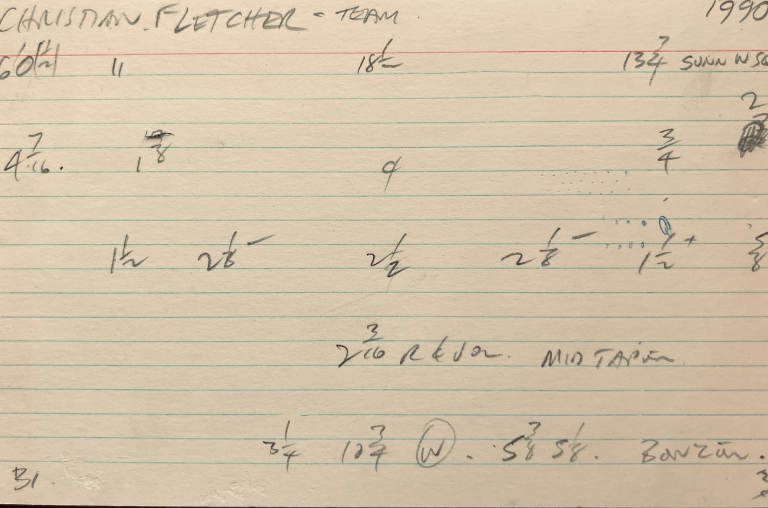 CHRISTIAN FLETCHER - TEAM. 1990
6'0 1/2 11 18 1/2 13 3/4 SUNN W SQ
2
4 7/16. 1 7/8 9 3/4
1 1/2 2 1/8 - 2 1/2 2 1/8 - 1 1/2 + 5/8
2 3/16 R MID TAPER
3 1/4 12 3/4 W. 5 3/8 5 1/8.
B1.